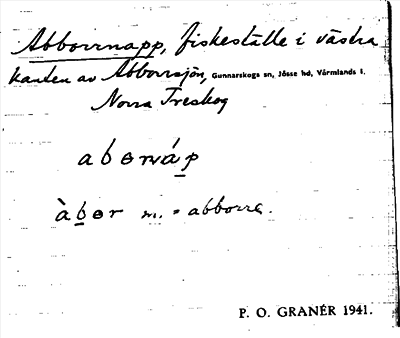 Abborrnapp, fiskeställe i västra
kanten av Abborrsjön, Gunnarskogs sn, Jösse hd, Värmlands l.
Norra Treskog
abɵrnáp
àbɵr m. = abborre.
P. O. GRANÉR 1941.